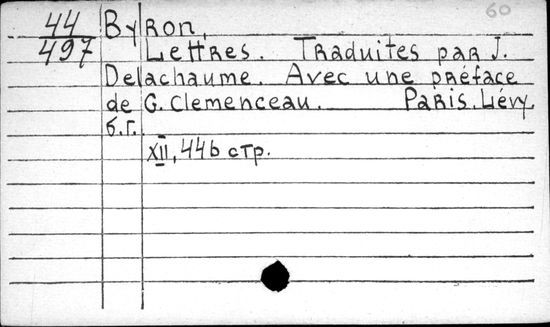 60
44
497
Byron,
Lettres. Traduites par J.
Delachaume. Avec une préface
de G. Clemenceau. Paris. Lévy.
б.г.
XII, 446 стр.